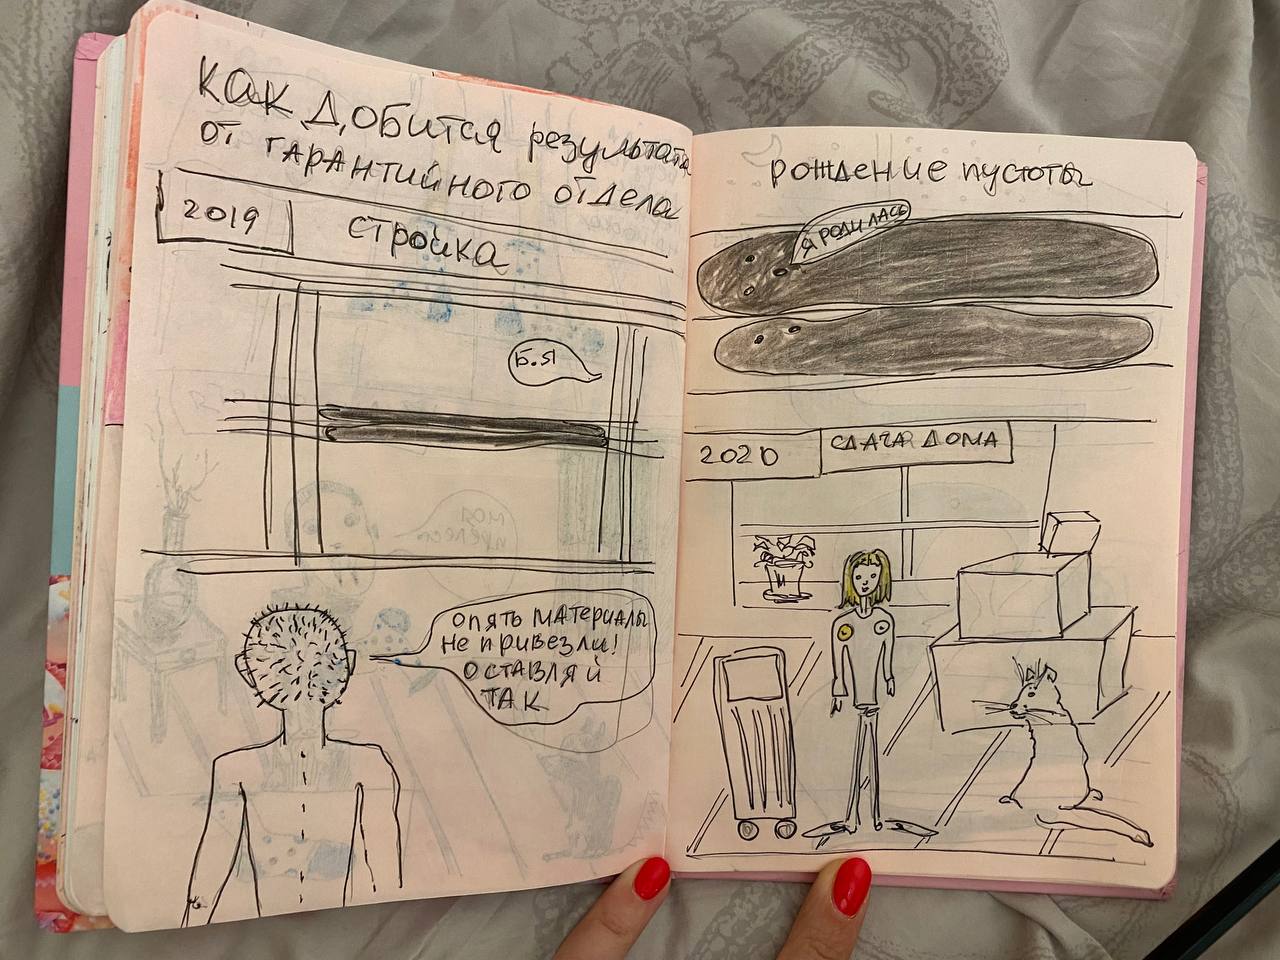 как добится результата
от гарантийного отдела
2019
стройка
Б.Я
опять материалы
не привезли!
оставляй
так
рождение пустоты
я родилась
2020
сдача дома